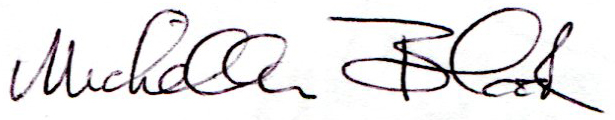 Michelle Black